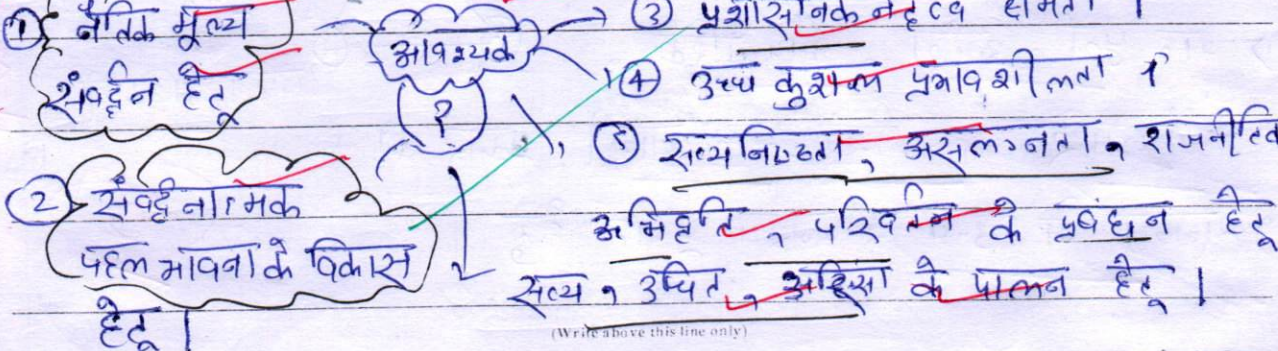 ① नैतिक मूल्य
संवर्द्धन हेतू
आवश्यक
?
② संवर्द्धनात्मक
पहल भावना के विकास
हेतू |
③ प्रशासनिक नेतृत्व क्षमता |
④ उच्च कुशल प्रभावशीलता |
⑤ सत्यनिष्ठता, असंलग्नता, राजनीतिक
अभिवृत्ति, परिवर्तन के प्रबंधन हेतू
सत्य, उचित, अहिंसा के पालन हेतू |
(Write above this line only)